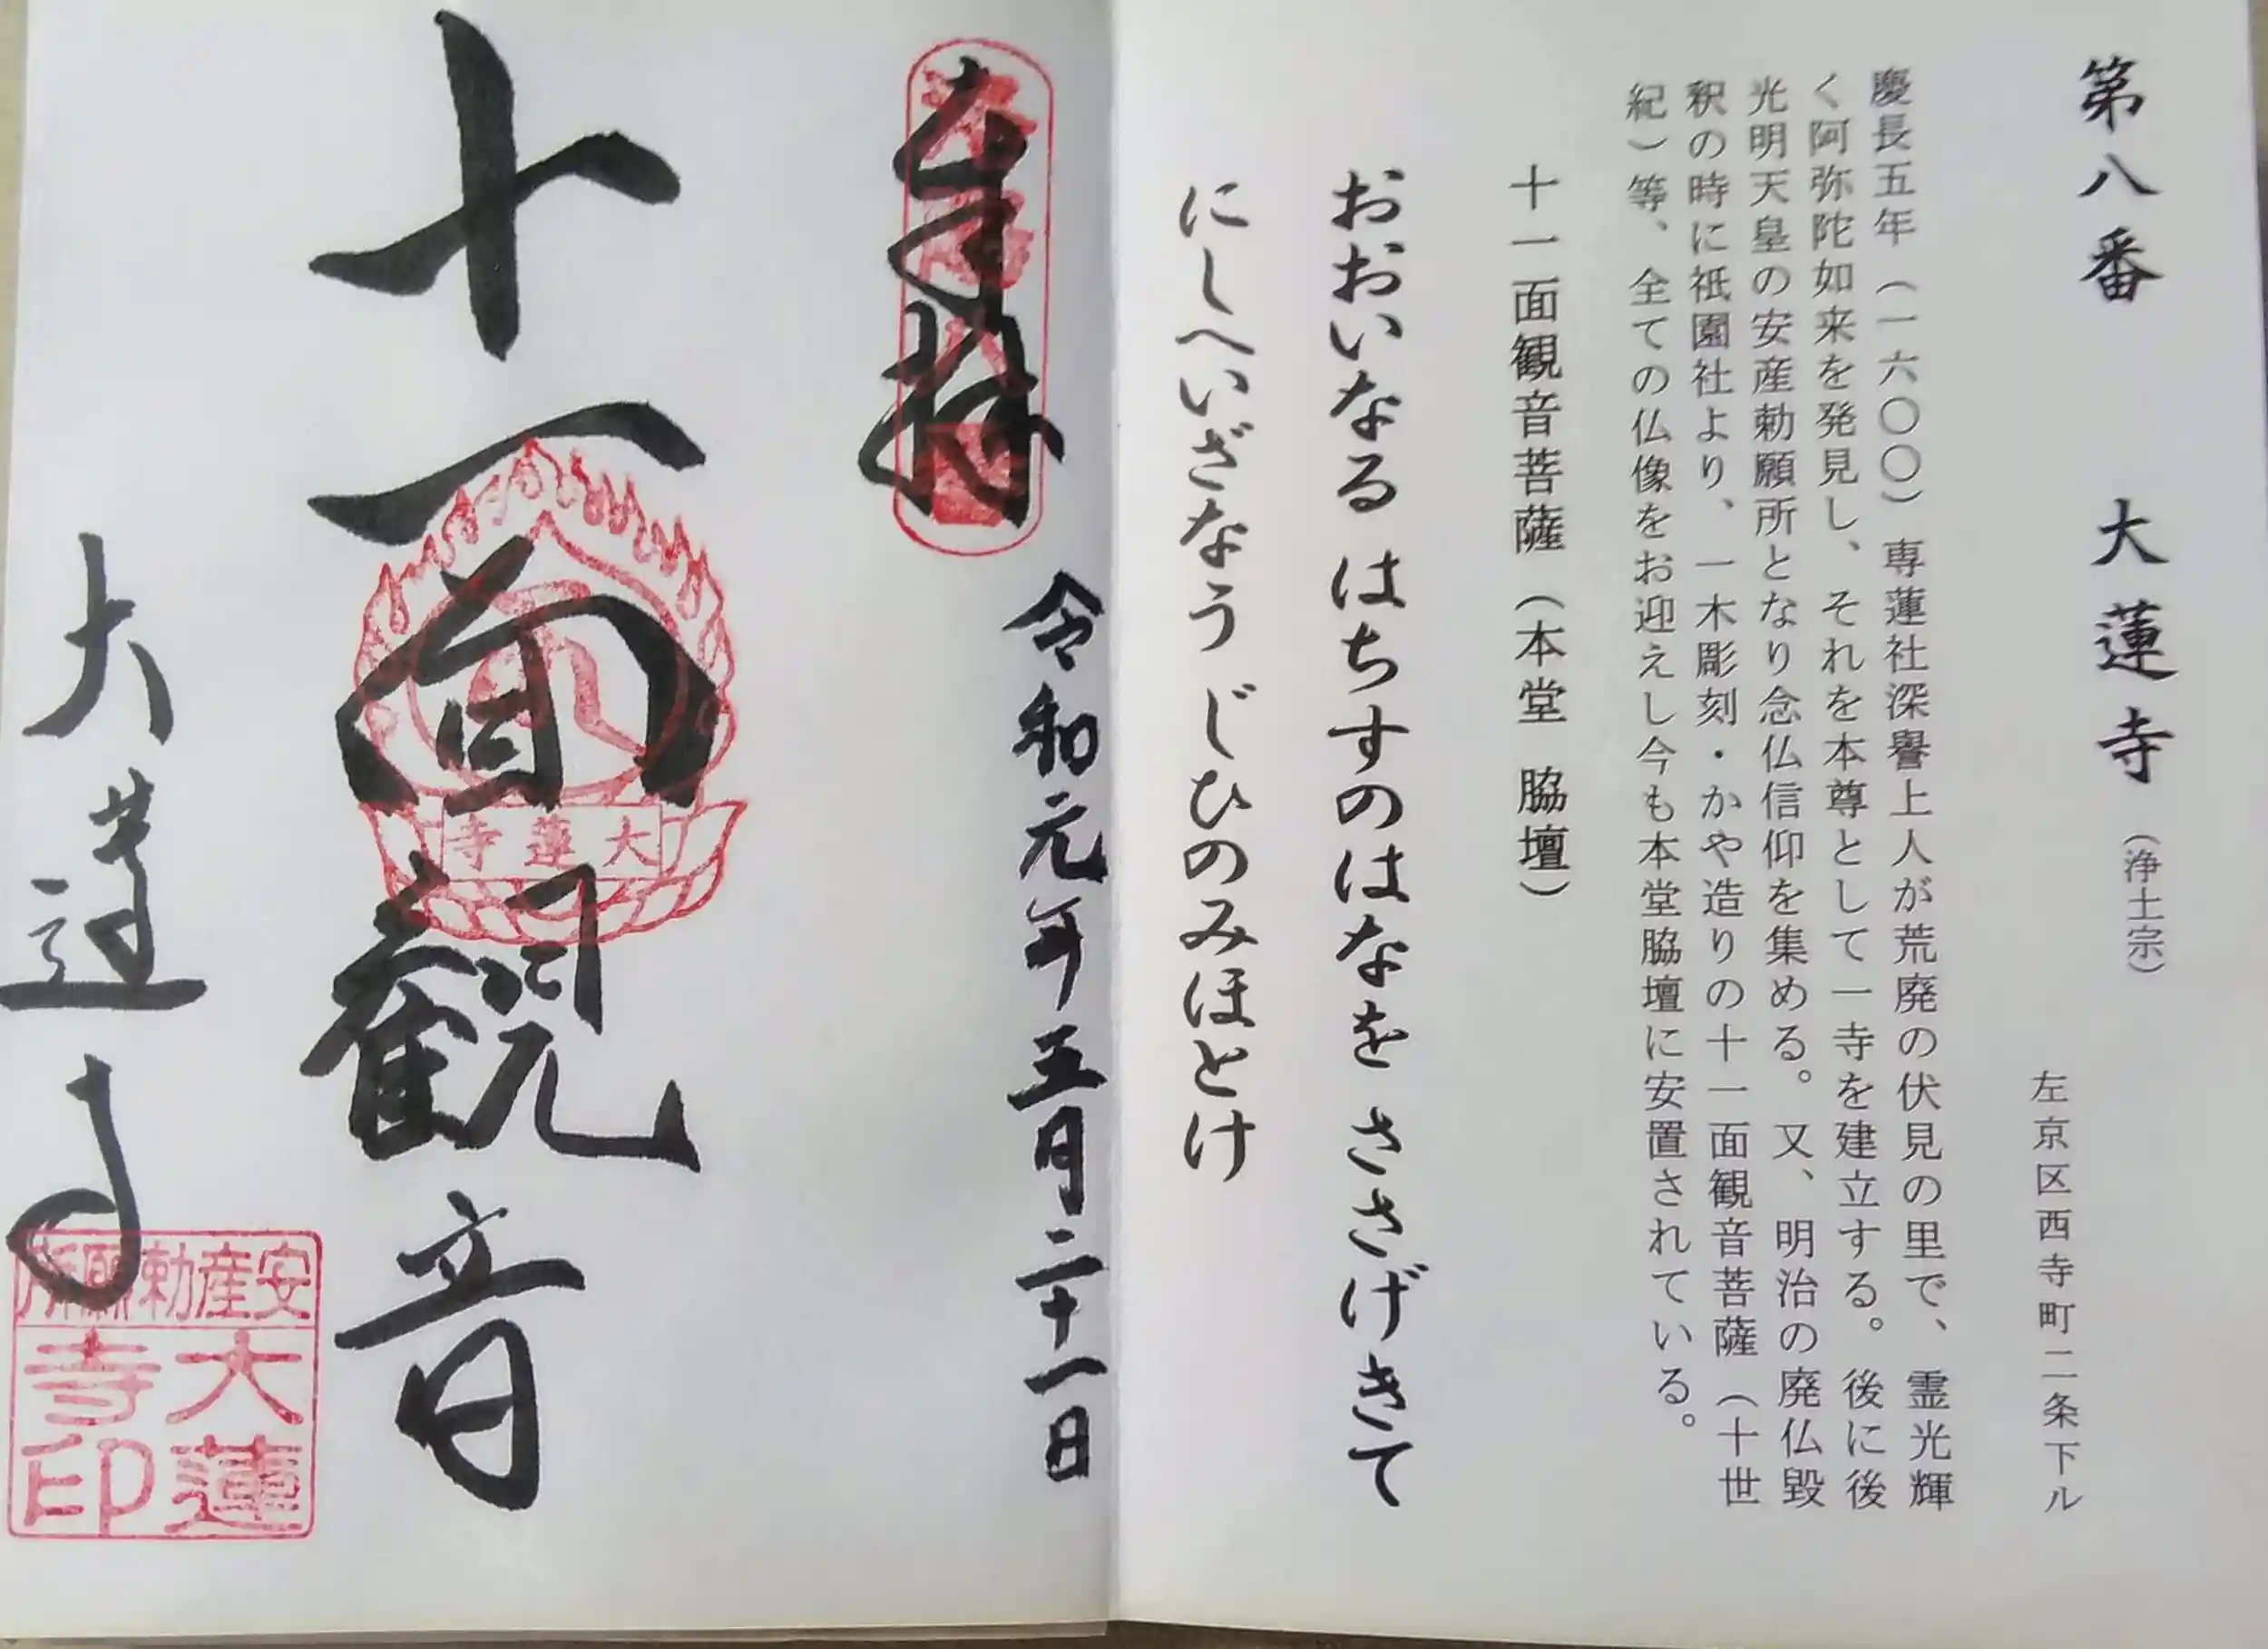 第八番 大蓮寺（浄土宗）
左京区西寺町二条下ル
慶長五年（一六〇〇）専蓮社深譽上人が荒廃の伏見の里で、霊光輝
く阿弥陀如来を発見し、それを本尊として一寺を建立する。後に後
光明天皇の安産勅願所となり念仏信仰を集める。又、明治の廃仏毀
釈の時に祇園社より、一木彫刻・かや造りの十一面観音菩薩（十世
紀）等、全ての仏像をお迎えし今も本堂脇壇に安置されている。
十一面観音菩薩（本堂 脇壇）
おおいなる はちすのはなを ささげきて
にしへいざなう じひのみほとけ
奉拝
令和元年五月二十一日
十一面観音
大蓮寺
大蓮寺
安産勅願所
大蓮
寺印